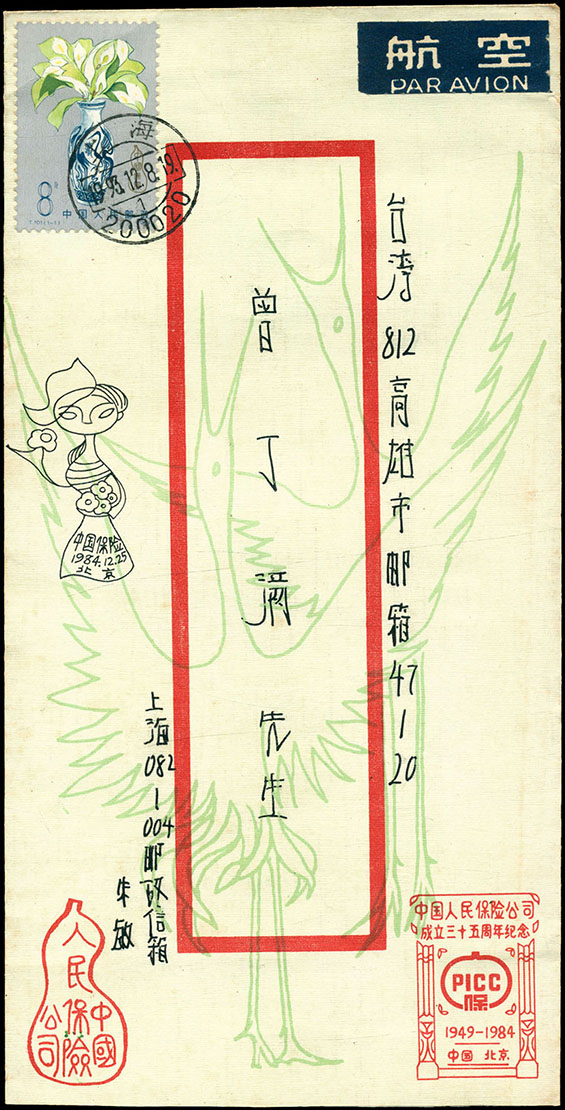 航空
PAR AVION
8分
中国人民邮政
T.101(1-1)
海
1993.12.8.19
1
200020
台湾812高雄市邮箱47-1-20
曾丁满先生
上海082-004邮政信箱
朱敏
中国保险
1984.12.25
北京
中國
人民保險
公司
中国人民保险公司
成立三十五周年纪念
PICC
保
1949-1984
中国 北京